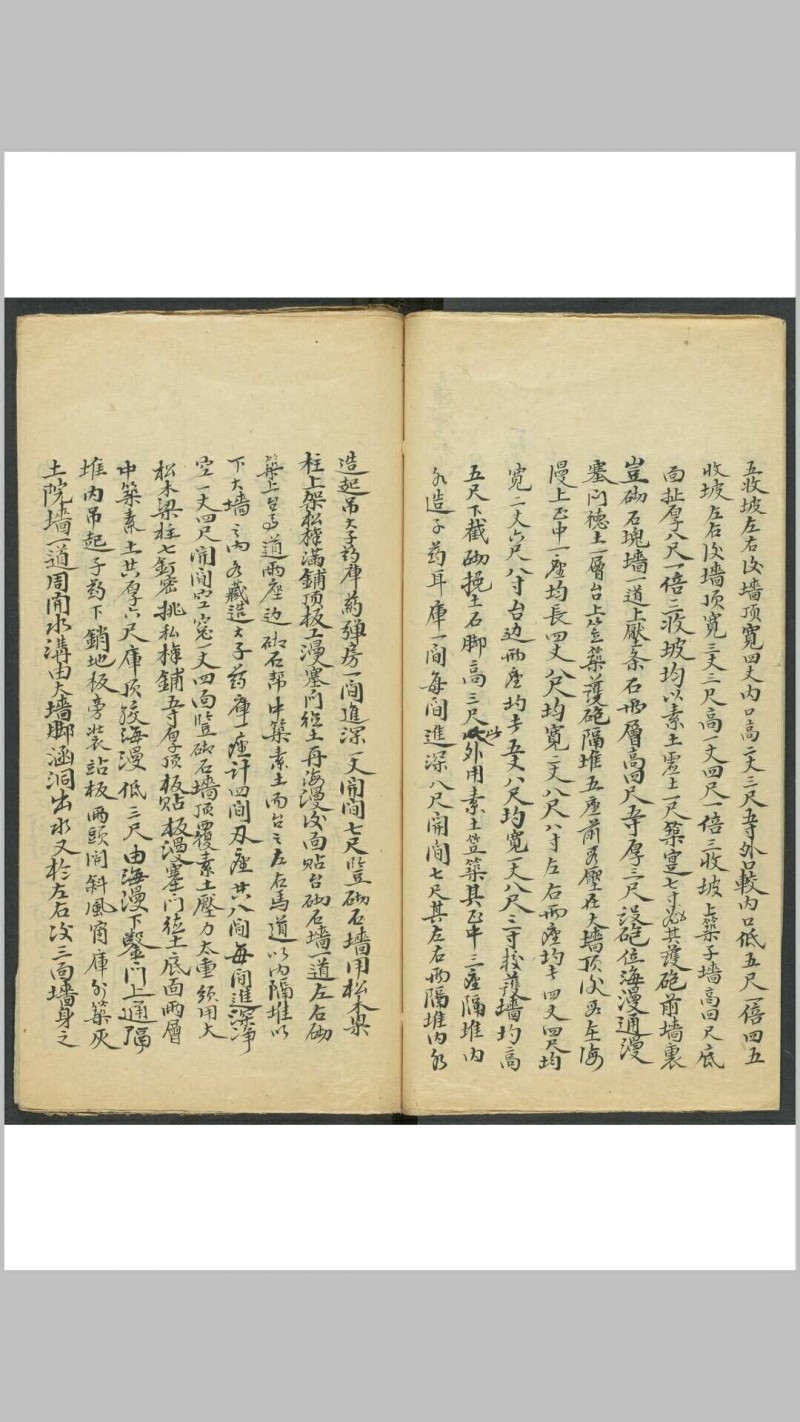 五收坡左右後墙顶寬四丈内口高二丈三尺五寸外口較内口低五尺一倍四五
收坡左右後墙顶寬三丈三尺高一丈四尺一倍三收坡上築子墙高四尺底
面扯厚八尺一倍二收坡均以素土虚土一尺築寔七寸其護砲前墙裏
豈砌石瑰墙一道上壓条石兩層高四尺五寸厚三尺砲位海漫通漫
塞门德土一層台上豎築護砲隔堆五座前壓在大墙顶後至海
漫上正中一座均長四丈八尺均寬二丈八尺八寸左右兩座均長四丈四尺均
寬一丈六尺八寸台边兩座均長五丈八尺均寬一丈八尺二寸較護墙均高
五尺下截砌挽土石脚高三尺以外用素土豎築其正中三座隔堆内
各造子药耳庫一间每间進深八尺開间七尺其左右兩隔堆内各
造起吊大子药庫药弹房一间進深一丈開间七尺豎砌石墙用松木梁
柱上架松樑满鋪顶板上漫塞门德土再海漫後面贴台砌石墙一道左右砌
築上台馬道兩座边砌石帮中築素土而台之左右馬道以内隔堆以
下大墙之内各藏造大子药庫一座计四间兩座共八间每间進深净
空一丈四尺開间空寬一丈四面豎砌石墙顶覆素土壓力太重须用大
松木梁柱七劄密挑松樑鋪五寸厚顶板贴板漫塞门德土底面兩層
中築素土共厚六尺庫顶較海漫低三尺由海漫下鑿门上通隔
堆内吊起子药下鋪地板旁装站板兩頭開斜風窗庫外築灰
土院墙一道周開水溝由大墙脚涵洞出水又於左右後三面墙身之